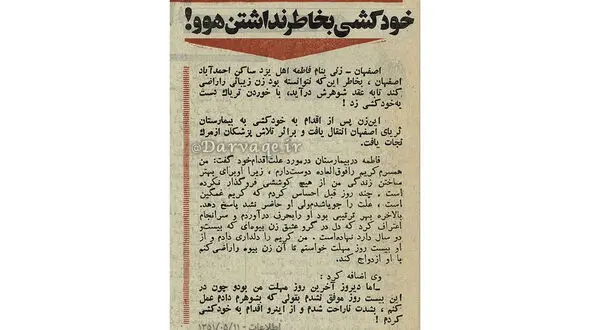 خودکشی بخاطر نداشتن هوو!
اصفهان - زنی بنام فاطمه اهل یزد ساکن احمدآباد
اصفهان، بخاطر این‌که نتوانسته بود زن زیبائی راراضی
کند تابه عقد شوهرش درآید، با خوردن تریاك دست
به‌خودکشی زد !
این‌زن پس از اقدام به خودکشی به بیمارستان
ثریای اصفهان انتقال یافت و براثر تلاش پزشکان ازمرك
نجات یافت.
فاطمه دربیمارستان درمورد علت‌اقدام‌خود گفت: من
همسرم کریم رافوق‌العاده دوست‌دارم ، زیرا اوبرای بهتر
ساختن زندگی من از هیچ کوششی فروگذار نکرده
است ، چند روز قبل احساس کردم که کریم غمگین
است ، علت را جویاشدم‌ولی او حاضر نشد پاسخ دهد.
بالاخره بهر ترتیبی بود او رابحرف درآوردم و سرانجام
اعتراف کرد که دل در گرو عشق زن بیوه‌ای که بیست‌و
دو سال دارد نهاده‌است . من کریم را دلداری دادم و از
او بیست روز مهلت خواستم تا آن زن بیوه وراضی‌کنم
با او ازدواج کند.
وی اضافه کرد :
- اما دیروز آخرین روز مهلت من بودو چون در
این بیست روز موفق نشدم بقولی که بشوهرم دادم عمل
کنم ، بشدت ناراحت شدم و از اینرو اقدام به خودکشی
کردم !
اطلاعات - ۱۳۵۱/۰۵/۱۱
©Darvaqe.ir